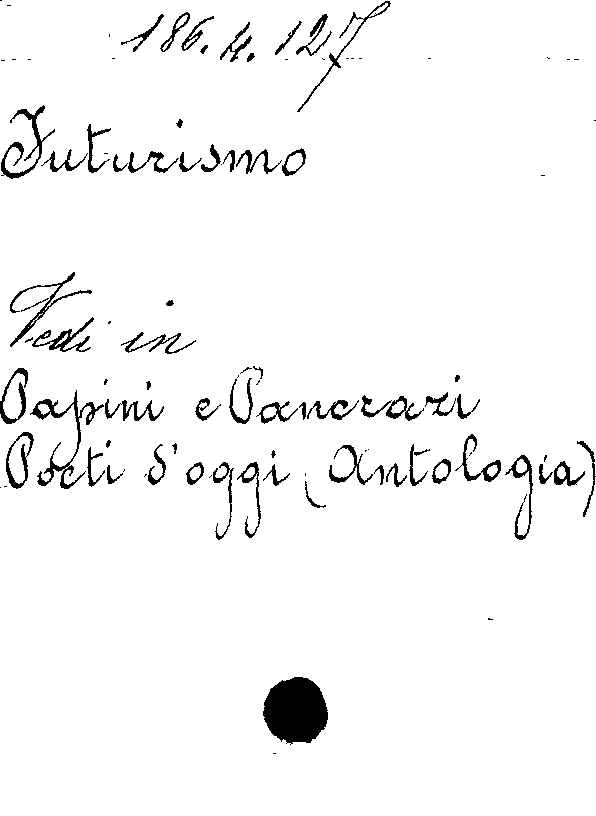 186.4.127
Futurismo
Vedi in
Papini e Pancrazi
Poeti d'oggi (Antologia)